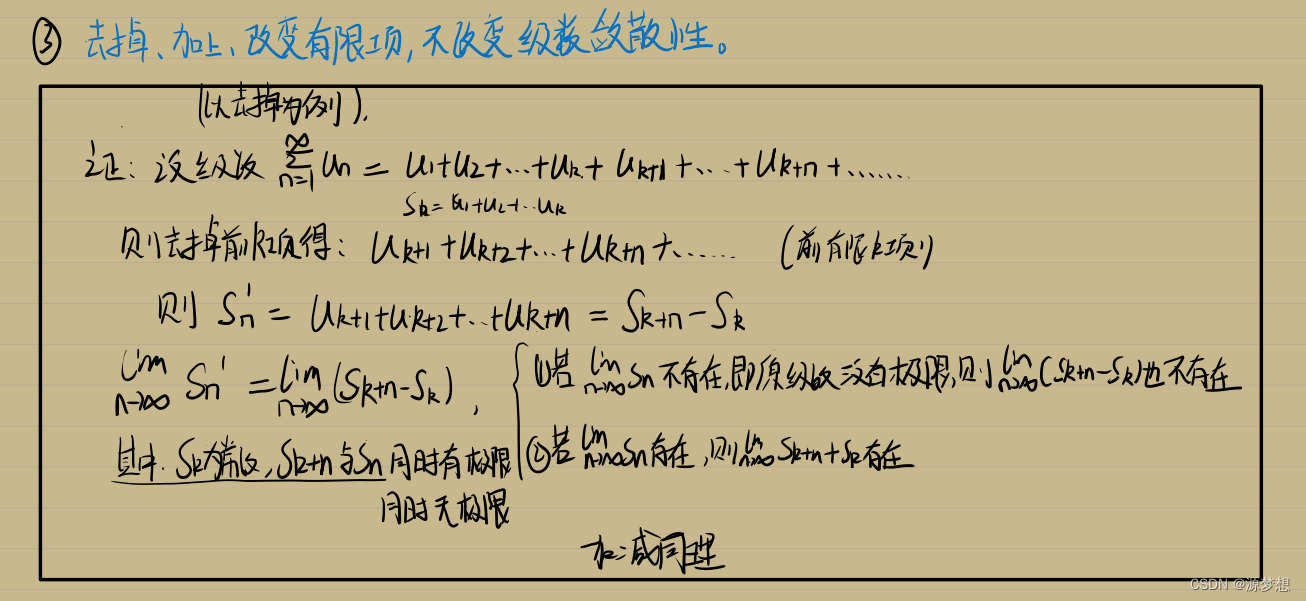 ③ 去掉、加上、改变有限项,不改变级数敛散性。
(以去掉为例).
证: 设级数 ∞∑n=1 Un = U1+U2+…+Uk+ Uk+1+…+Uk+n+……
Sk=U1+U2+…Uk
则去掉前k项得: Uk+1+Uk+2+…+Uk+n+…… (前有限k项)
则 Sn' = Uk+1+Uk+2+…+Uk+n = Sk+n-Sk
lim n→∞ Sn' = lim n→∞ (Sk+n-Sk),
{ ①若 lim n→∞ Sn 不存在,即原级数没有极限,则 lim n→∞ (Sk+n-Sk)也不存在
其中. Sk为常数, Sk+n与Sn 同时有极限
②若 lim n→∞ Sn存在,则 lim n→∞ Sk+n+Sk存在
同时无极限
加减同理
CSDN @源梦想